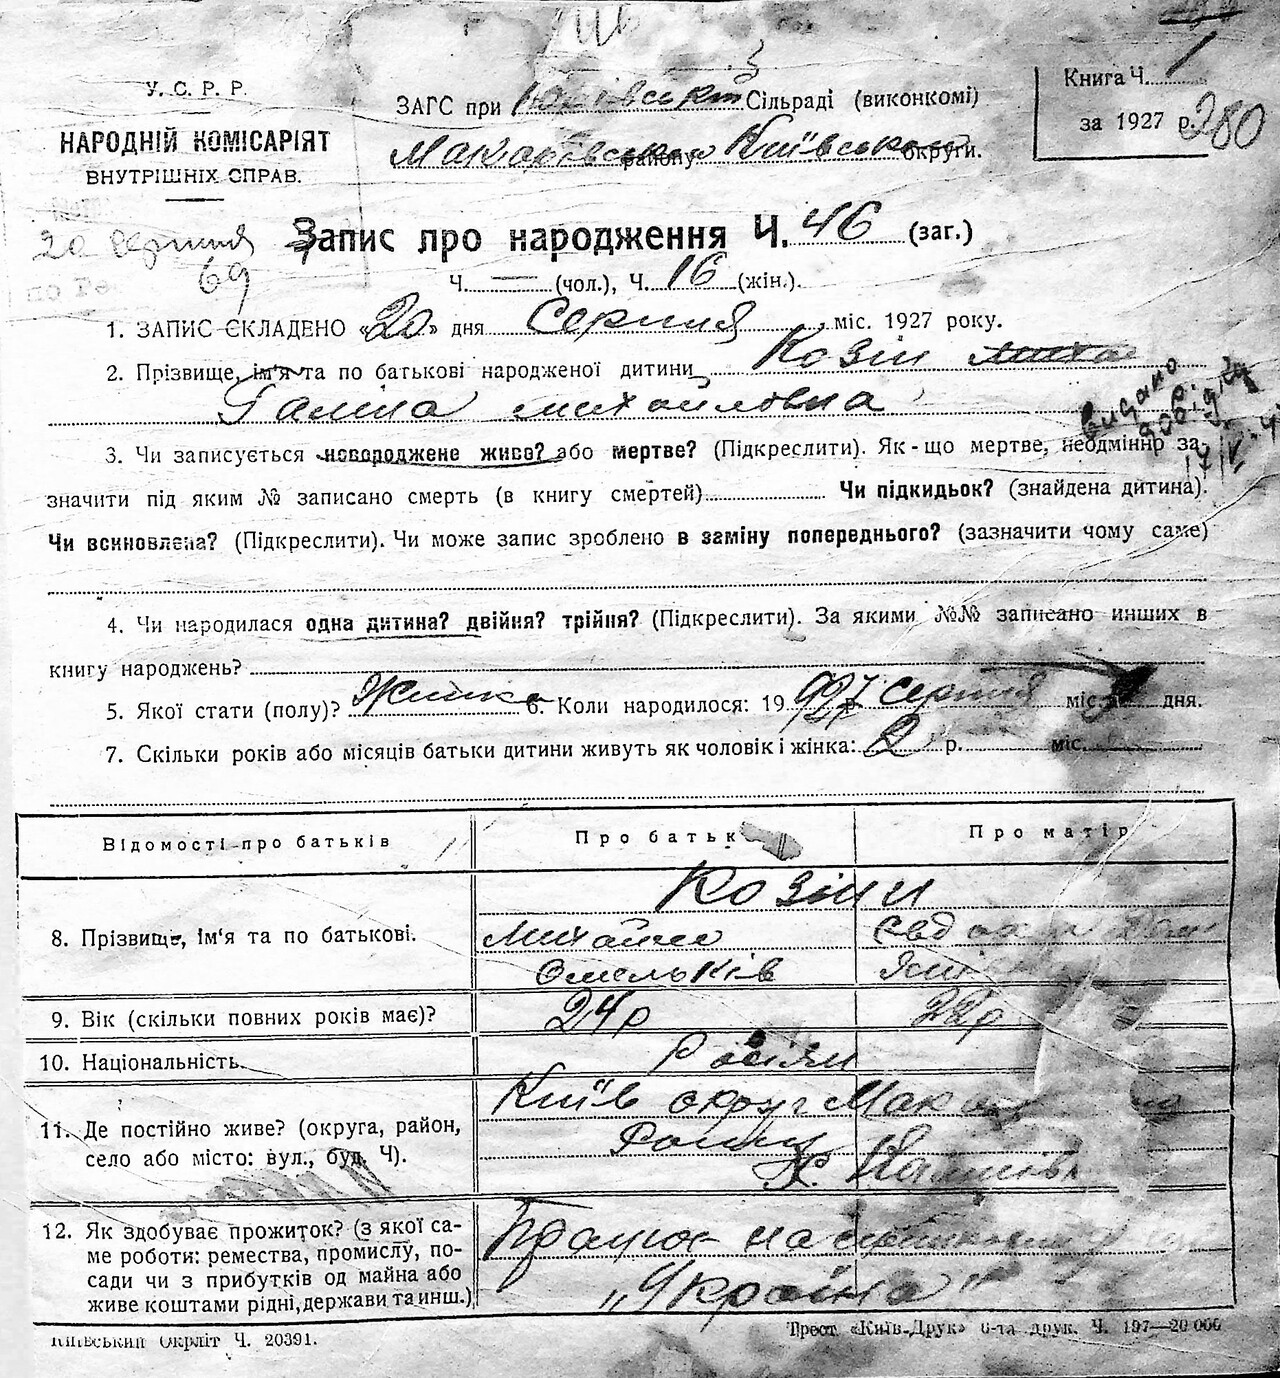 У. С. Р. Р.
НАРОДНІЙ КОМІСАРІЯТ
ВНУТРІШНІХ СПРАВ.
ЗАГС при Сільраді (виконкомі)
Макарівського району Київської округи.
Книга Ч. 1
за 1927 р. 280
20 серпня
69
Запис про народження Ч. 46 (заг.)
Ч. — (чол.), Ч. 16 (жін.).
1. ЗАПИС СКЛАДЕНО «20» дня Серпня міс. 1927 року.
2. Прізвище, ім'я та по батькові народженої дитини Козін
Галина Михайловна
Видано довідку
3. Чи записується новороджене живе? або мертве? (Підкреслити). Як-що мертве, неодмінно за-
значити під яким № записано смерть (в книгу смертей) Чи підкидьок? (знайдена дитина).
Чи всиновлена? (Підкреслити). Чи може запис зроблено в заміну попереднього? (зазначити чому саме)
4. Чи народилася одна дитина? двійня? трійня? (Підкреслити). За якими №№ записано инших в
книгу народжень?
5. Якої стати (полу)? Жінка 6. Коли народилося: 1927 р. Серпня міс. дня.
7. Скільки років або місяців батьки дитини живуть як чоловік і жінка: 2 р. міс.
Відомості про батьків
Про батьк
Про матір
8. Прізвище, ім'я та по батькові.
Козіни
Михайло
Омельків
9. Вік (скільки повних років має)?
24 р
22 р
10. Національність.
Росіян
11. Де постійно живе? (округа, район,
село або місто: вул., буд. Ч).
Київ округ
12. Як здобуває прожиток? (з якої са-
ме роботи: ремества, промислу, по-
сади чи з прибутків од майна або
живе коштами рідні, держави та инш.)
Працює на
„Україна"
Київський Окрліт Ч. 20391.
Трест. «Київ-Друк» 6-та друк. Ч. 197—20 000